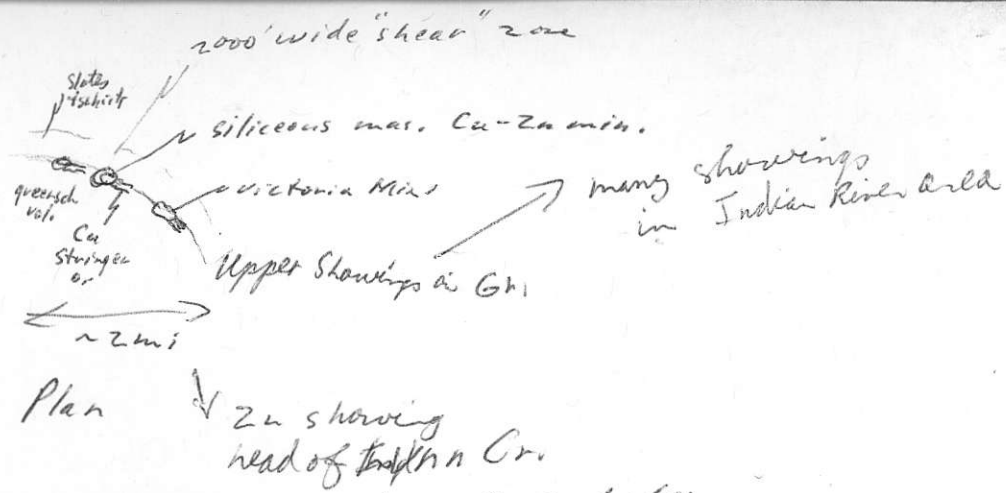 2000' wide "shear" zone
slates
+ schists
siliceous mas. Cu-Zn min.
greensch
vol.
Victoria Mine
many showings
in Indian River area
Cu
stringer
or
Upper Showings in Gn.
~2mi
Plan
Zn showing
head of Indian Cr.